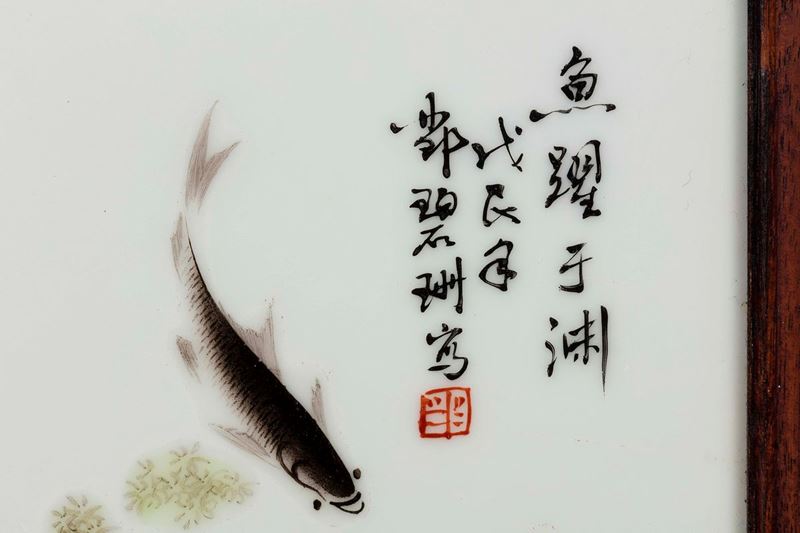 魚躍于渊
戊辰年
鄧碧珊寫